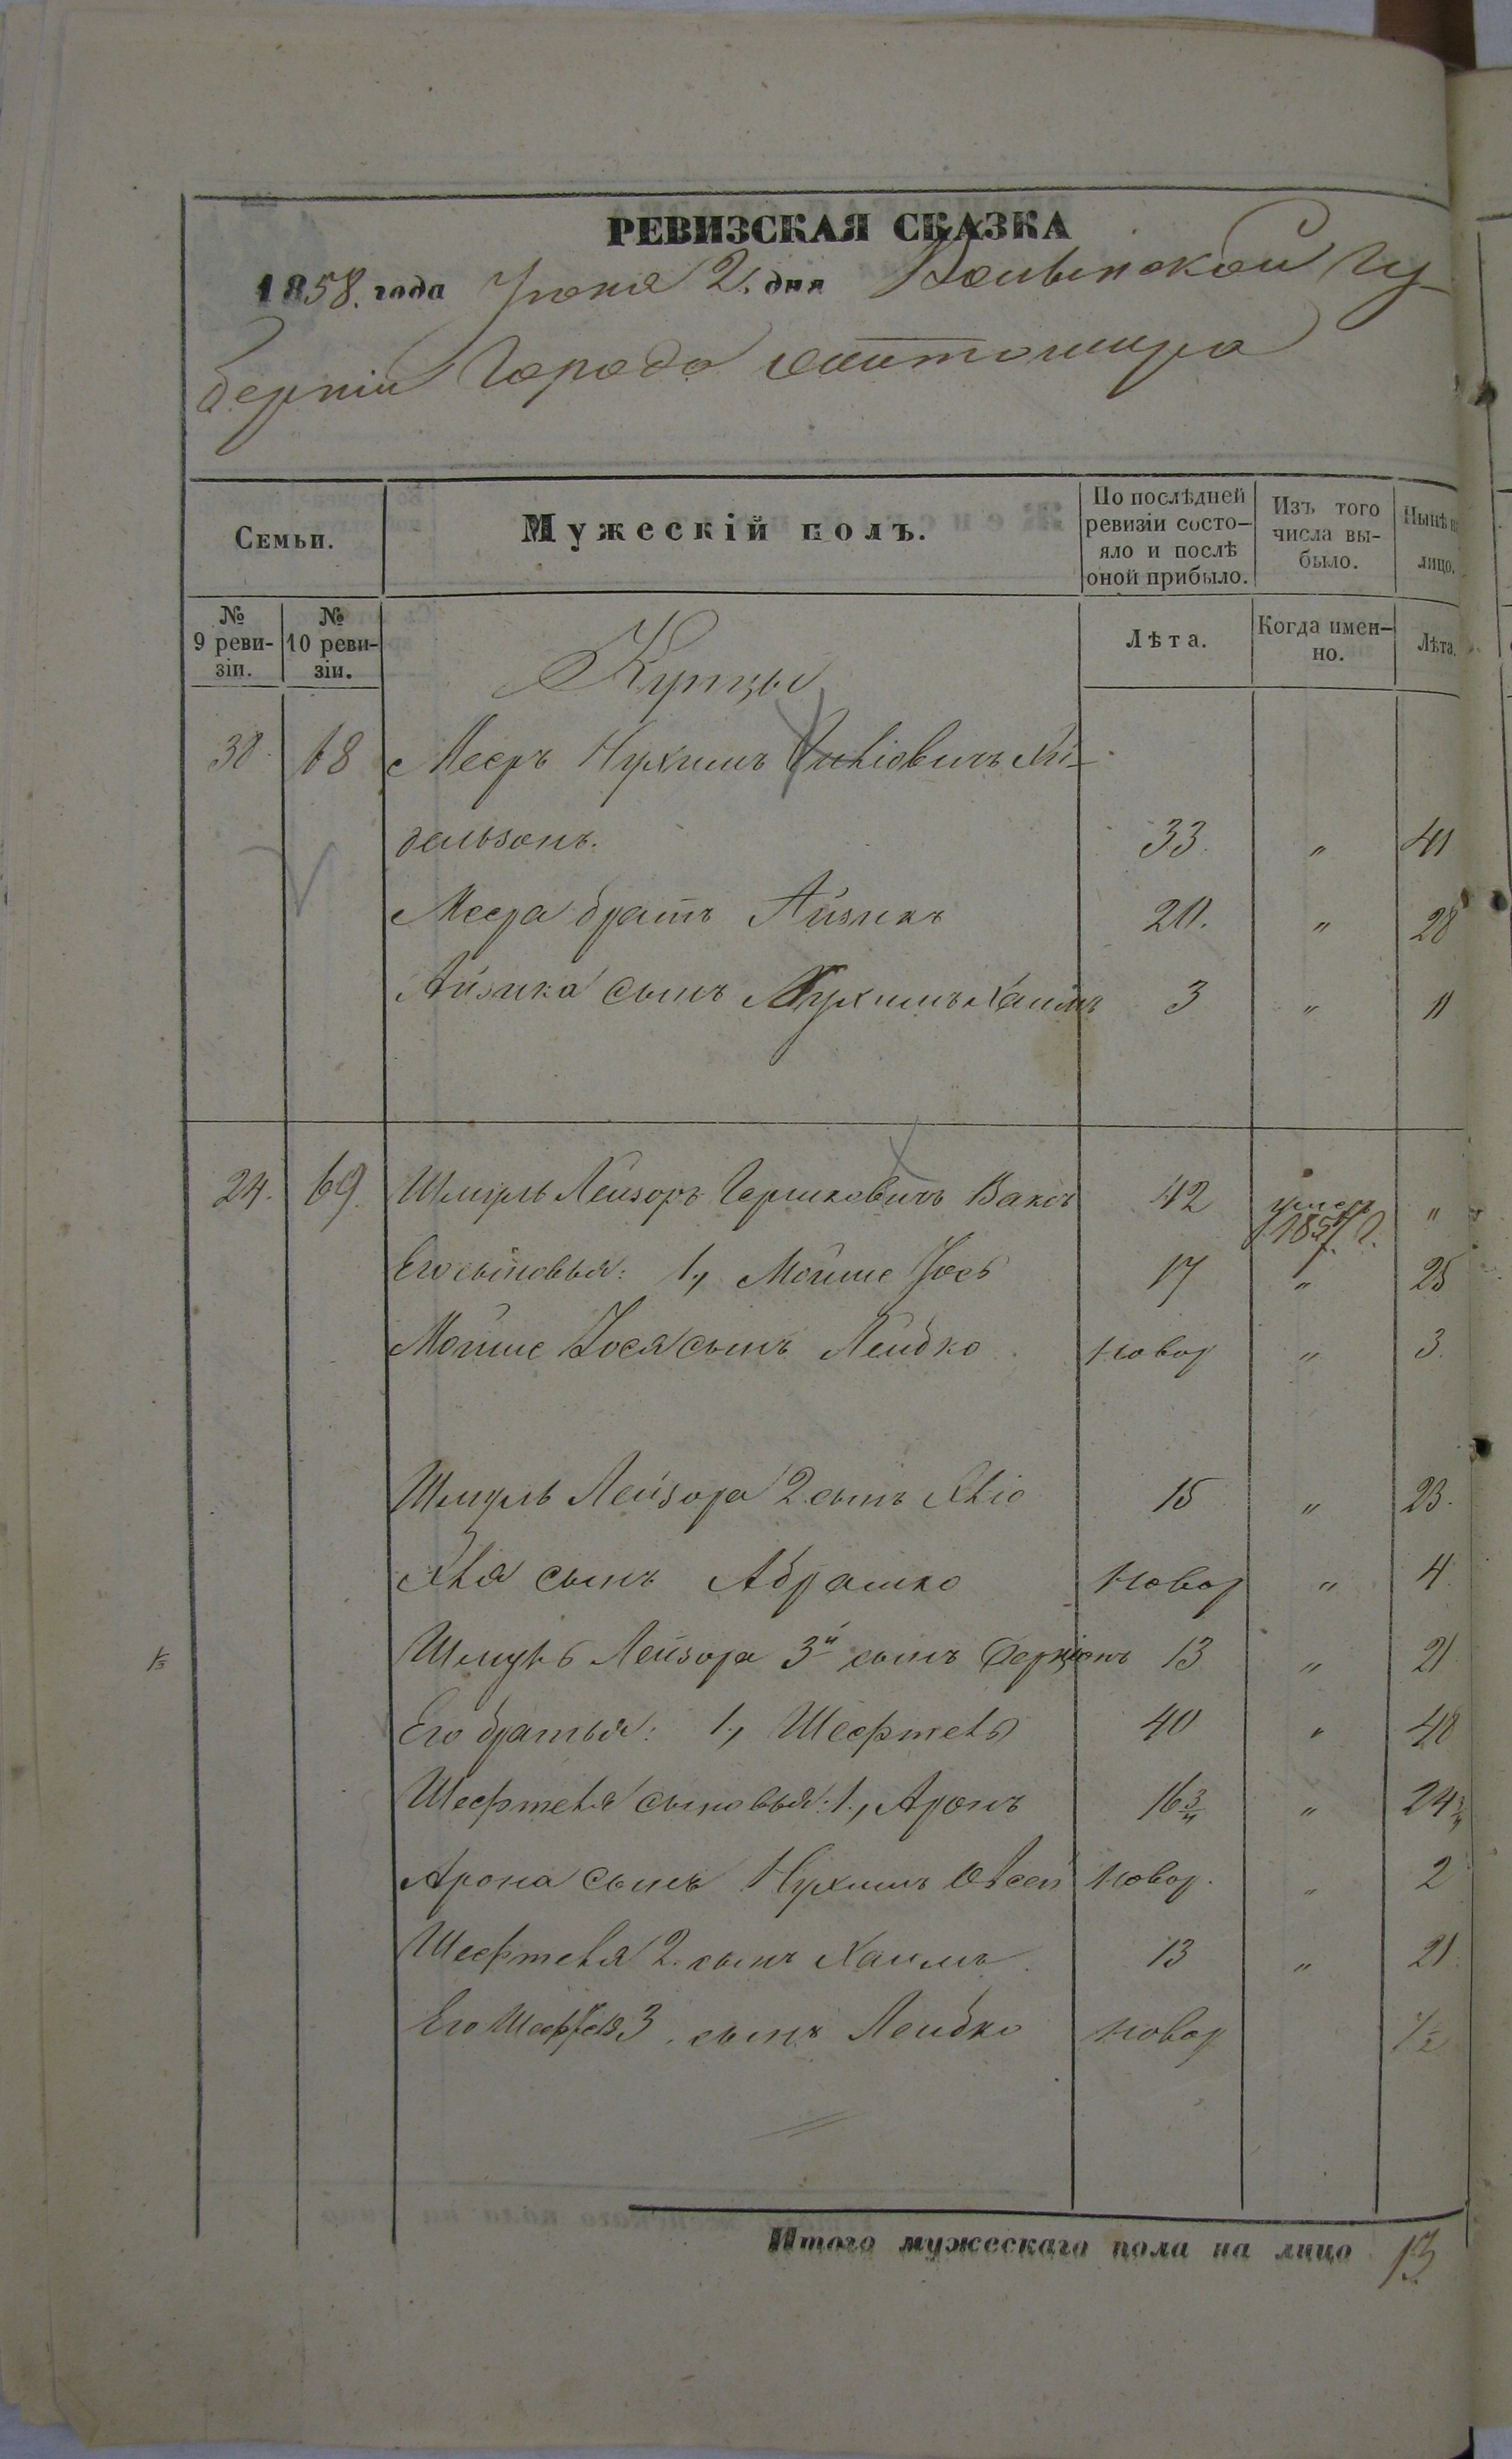 РЕВИЗСКАЯ СКАЗКА
1858. года Июня 2. дня Волынской Гу-
берніи Города Житомира
Семьи.
Мужескій полъ.
По послѣдней ревизіи состо-яло и послѣ оной прибыло.
Изъ того числа вы-было.
Нынѣ на лицо.
№ 9 реви-зіи.
№ 10 реви-зіи.
Купцы
Лѣта.
Когда имен-но.
Лѣта.
30 68 Мееръ Нухимъ
дельзонъ. 33. " 41
Меера братъ Айзикъ 20. " 28
Айзика сынъ Нухимъ Хаимъ 3 " 11
24. 69. Шмуль Лейзоръ Гершковичъ Ваксъ 42 умеръ 1857 г. "
Его сыновья: 1., Мойше Йось 17 " 25
Мойше Йося сынъ Лейбко новор " 3.
Шмуль Лейзора 2. сынъ 15 " 23.
сынъ Абрашко новор " 4
Шмуль Лейзора 3й сынъ Берціонъ 13 " 21
1/3
Его братья: 1., Шефтель 40 " 48
Шефтеля сыновья: 1., Аронъ 16 3/4 " 24 3/4
Арона сынъ Нухимъ Овсей новор. " 2
Шефтеля 2. сынъ Хаимъ 13 " 21.
Его Шефтеля 3. сынъ Лейбко новор 1/2
Итого мужескаго пола на лицо 13